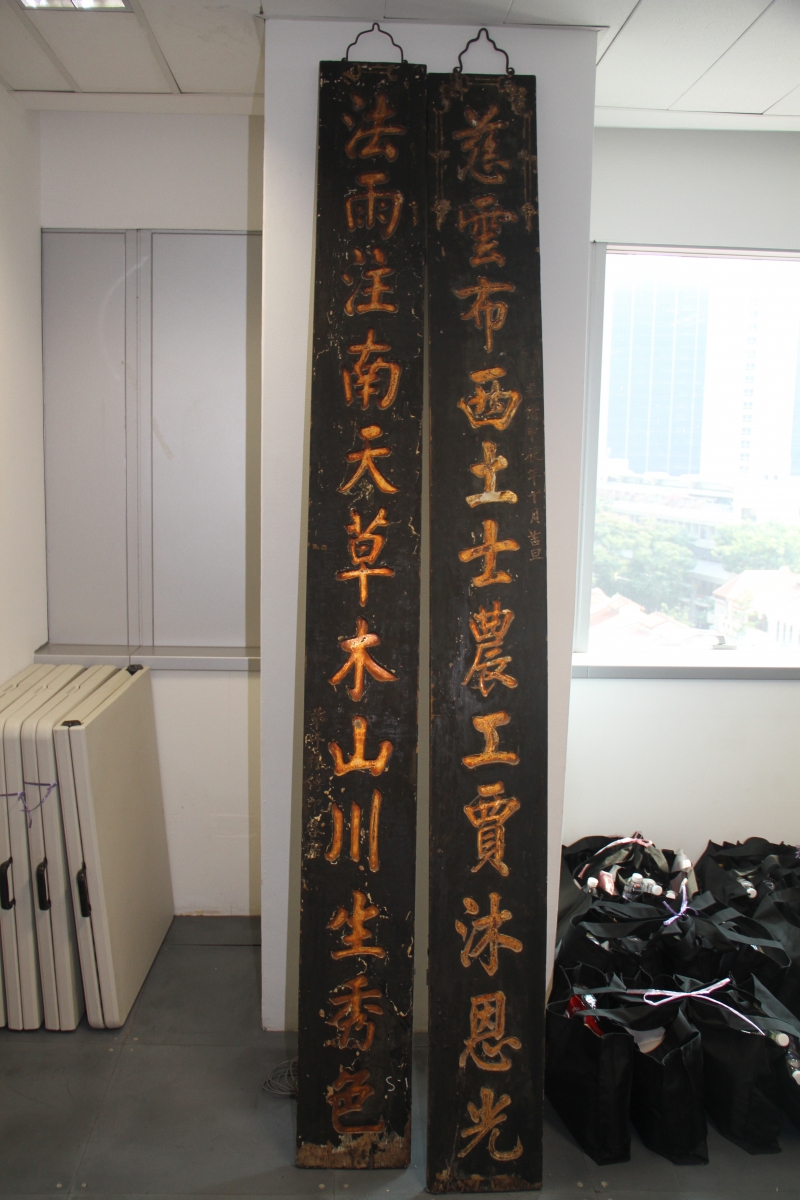 慈雲布西土士農工賈沐恩光
法雨注南天草木山川生秀色
S-1